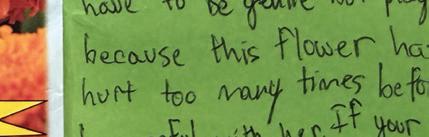 have to be gentle not play
because this flower ha
hurt too many times befo
ful with her. If your